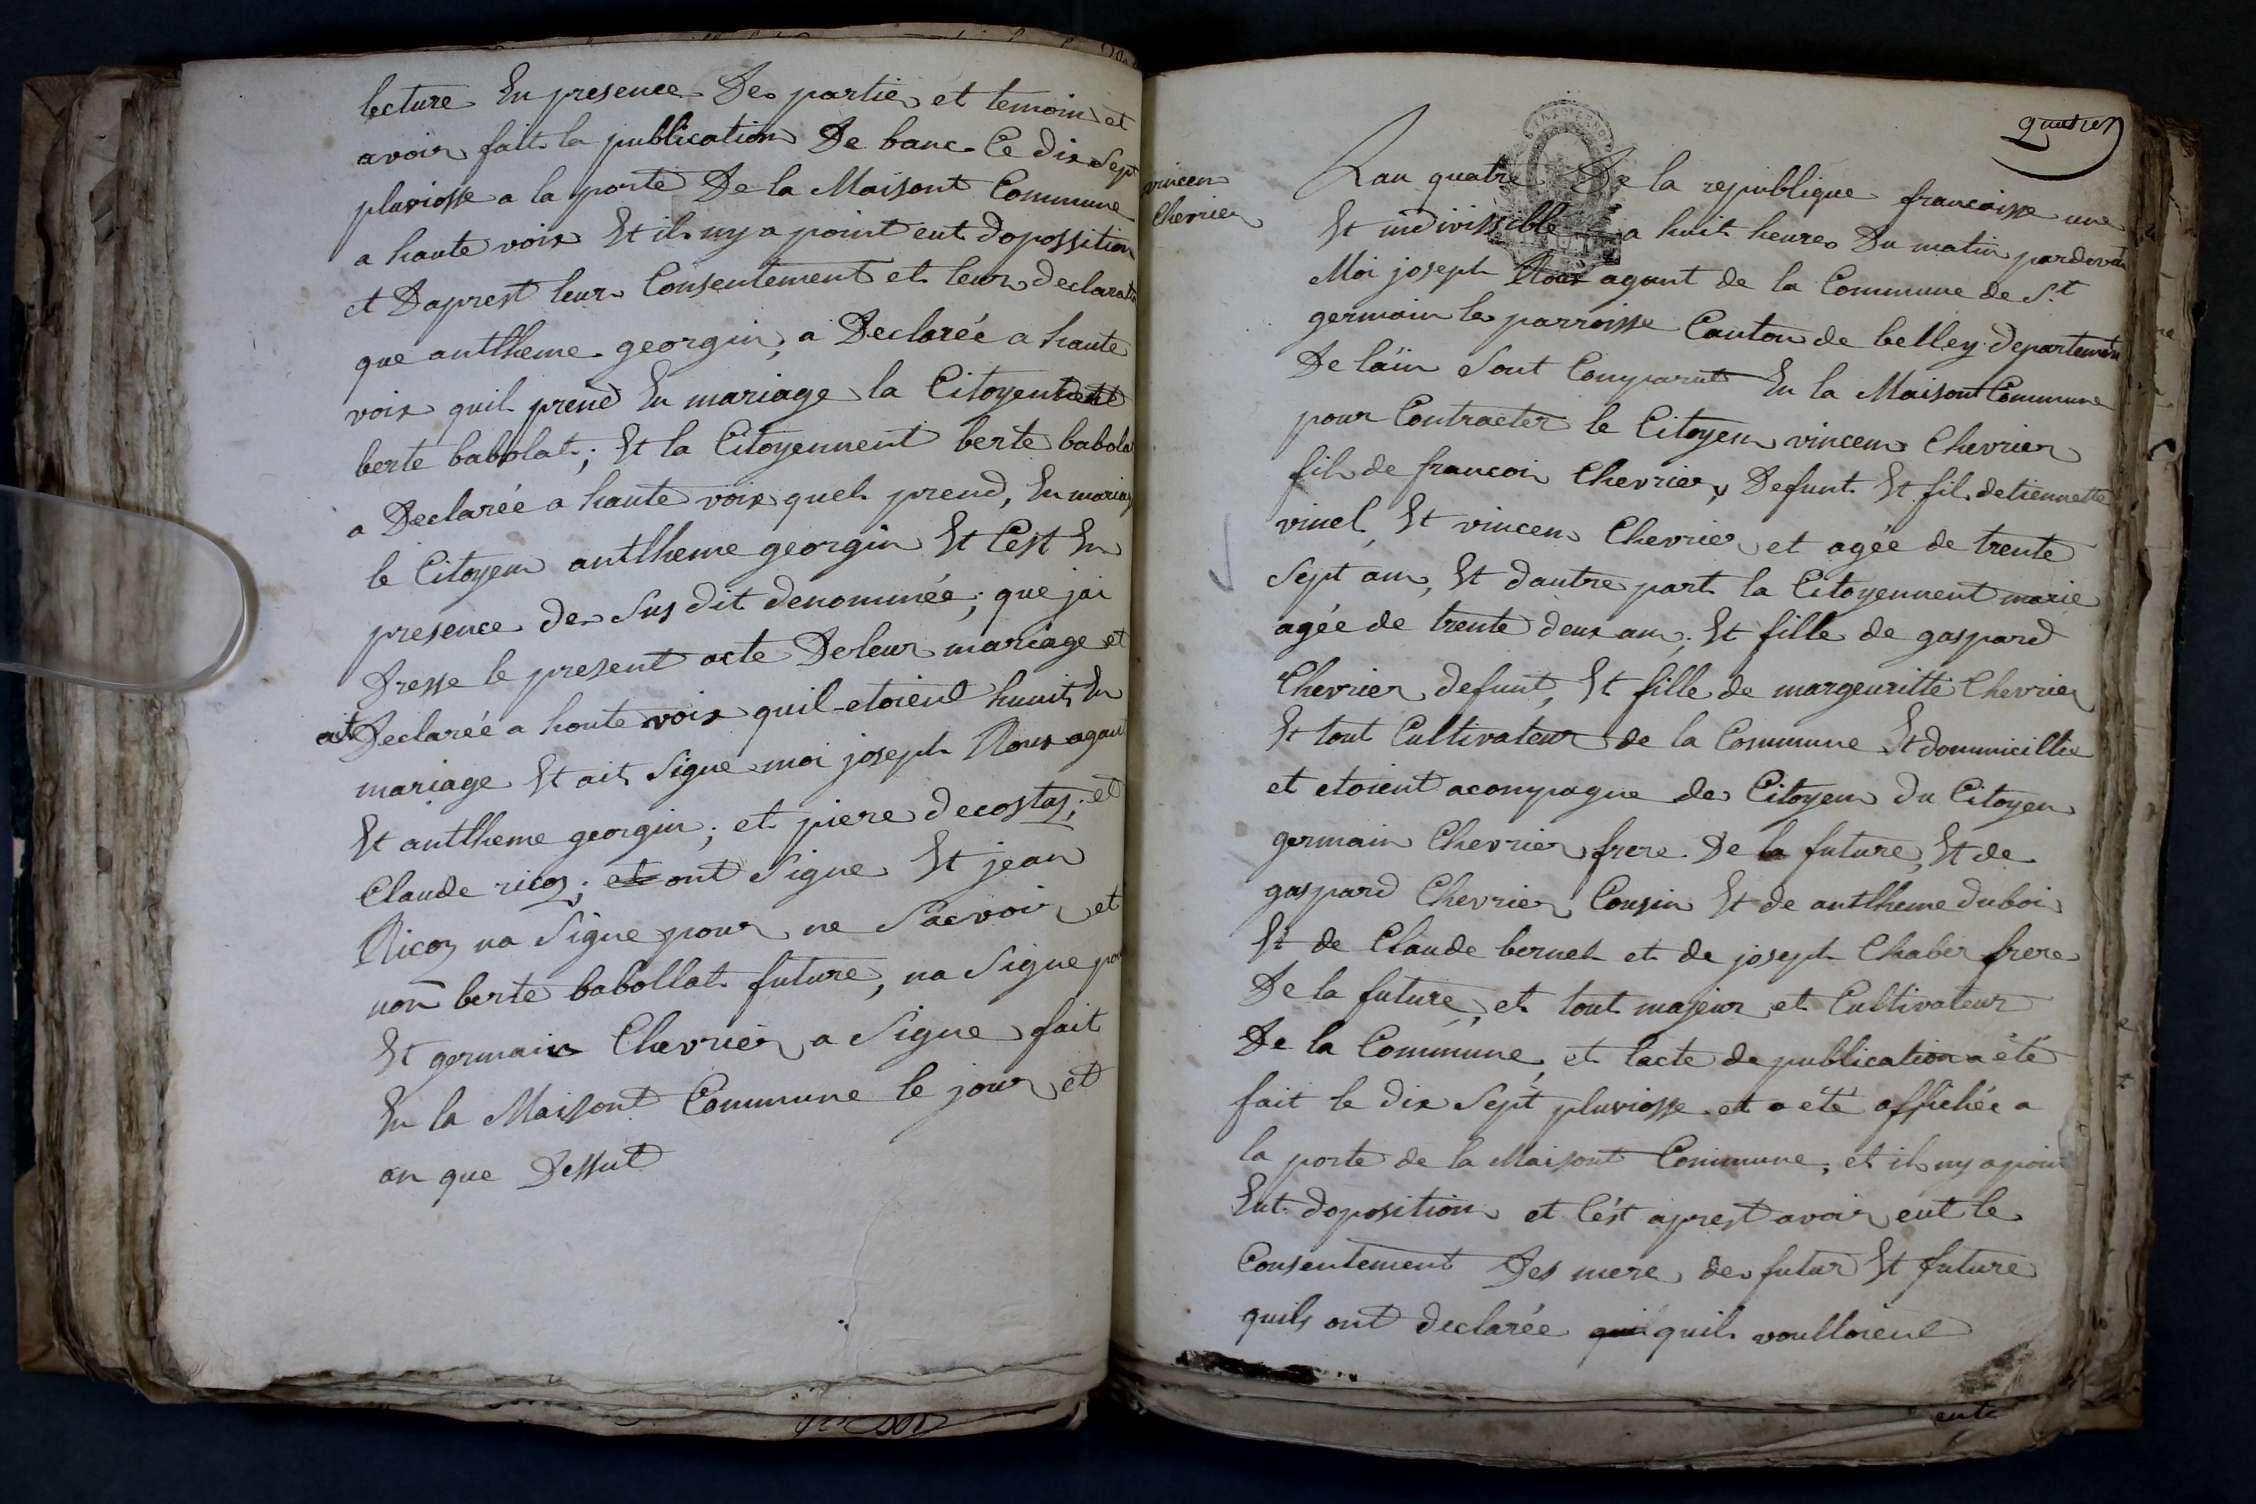 lecture En presence Des partie et temoin et
avoir fait la publication De banc Ce dix Sept
pluviosse a la porte De la Maisont Commune
a haute voix Et il ny a point eut dopossition
et Daprest leur Consentement et leur declaration
que antlheme georgin, a Declarée a haute
voix quil prend En mariage la Citoyennent
berte babolat; Et la Citoyennent berte babolat
a Declarée a haute voix quel prend, En mariage
le Citoyen antlheme georgin Et Cest En
presence des Sus dit denominée; que jai
Dresse le present acte De leur mariage et
ait Declarée a haute voix quil etoient hunit En
mariage Et ait Signe moi joseph Roux agant
Et antlheme georgin; et piere decostas; et
Claude ricoz; et ont Signe Et jean
Ricoz na Signe pour ne Sacvoir et
non berte babollat future, na Signe pour
Et germain Chevrier a Signe fait
En la Maisont Commune le jour et
an que Dessut
quatre
vincen
Chevrier
Lan quatre De la republique francoisse une
Et indivissible a huit heures Du matin pardevant
Moi joseph Roux agant de la Commune de St
germain les parroisse Canton de belley departement
De lain Sont Comparut En la Maisont Commune
pour Contracter le Citoyen vincen Chevrier
fils de francoin Chevrier, Defunt Et fil detiennette
vinel, Et vincen Chevrier et agée de trente
Sept am, Et dautre part la Citoyennent marie
agée de trente deux am; Et fille de gaspard
Chevrier defunt, Et fille de margeuritte Chevrier
Et tout Cultivateur de la Commune Et doumicillie
et etoient acompagne de Citoyen du Citoyen
germain Chevrier frere De la future, Et de
gaspard Chevrier Cousin Et de antlheme duboi
Et de Claude bernel et de joseph Chaber frere
De la future, et tout majeur et Cultivateur
De la Commune, et lacte de publication a été
fait le dix Sept pluviosse et a été affichée a
la porte de la Maisont Commune; et il ny a poin
Eut doposition et Cest aprest avoir eut le
Consentement Des mere de futur Et future
quils ont declarée qui quil voulloient